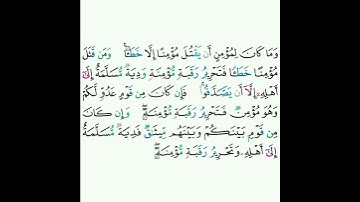 وَمَا كَانَ لِمُؤْمِنٍ أَن يَقْتُلَ مُؤْمِنًا إِلَّا خَطَـًٔا ۚ وَمَن قَتَلَ
مُؤْمِنًا خَطَـًٔا فَتَحْرِيرُ رَقَبَةٍ مُّؤْمِنَةٍ وَدِيَةٌ مُّسَلَّمَةٌ إِلَىٰٓ
أَهْلِهِۦٓ إِلَّآ أَن يَصَّدَّقُوا۟ ۚ فَإِن كَانَ مِن قَوْمٍ عَدُوٍّ لَّكُمْ
وَهُوَ مُؤْمِنٌ فَتَحْرِيرُ رَقَبَةٍ مُّؤْمِنَةٍ ۖ وَإِن كَانَ
مِن قَوْمٍۭ بَيْنَكُمْ وَبَيْنَهُم مِّيثَـٰقٌ فَدِيَةٌ مُّسَلَّمَةٌ
إِلَىٰٓ أَهْلِهِۦ وَتَحْرِيرُ رَقَبَةٍ مُّؤْمِنَةٍ ۖ